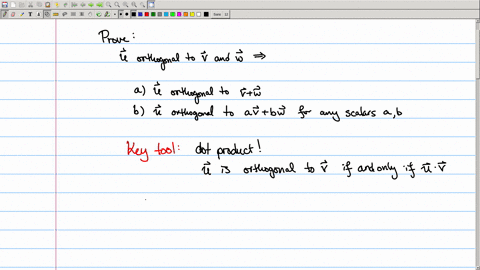 Prove:
u⃗ orthogonal to v⃗ and w⃗ ⇒
a) u⃗ orthogonal to v⃗+w⃗
b) u⃗ orthogonal to av⃗+bw⃗ for any scalars a,b
Key tool: dot product!
u⃗ is orthogonal to v⃗ if and only if u⃗·v⃗